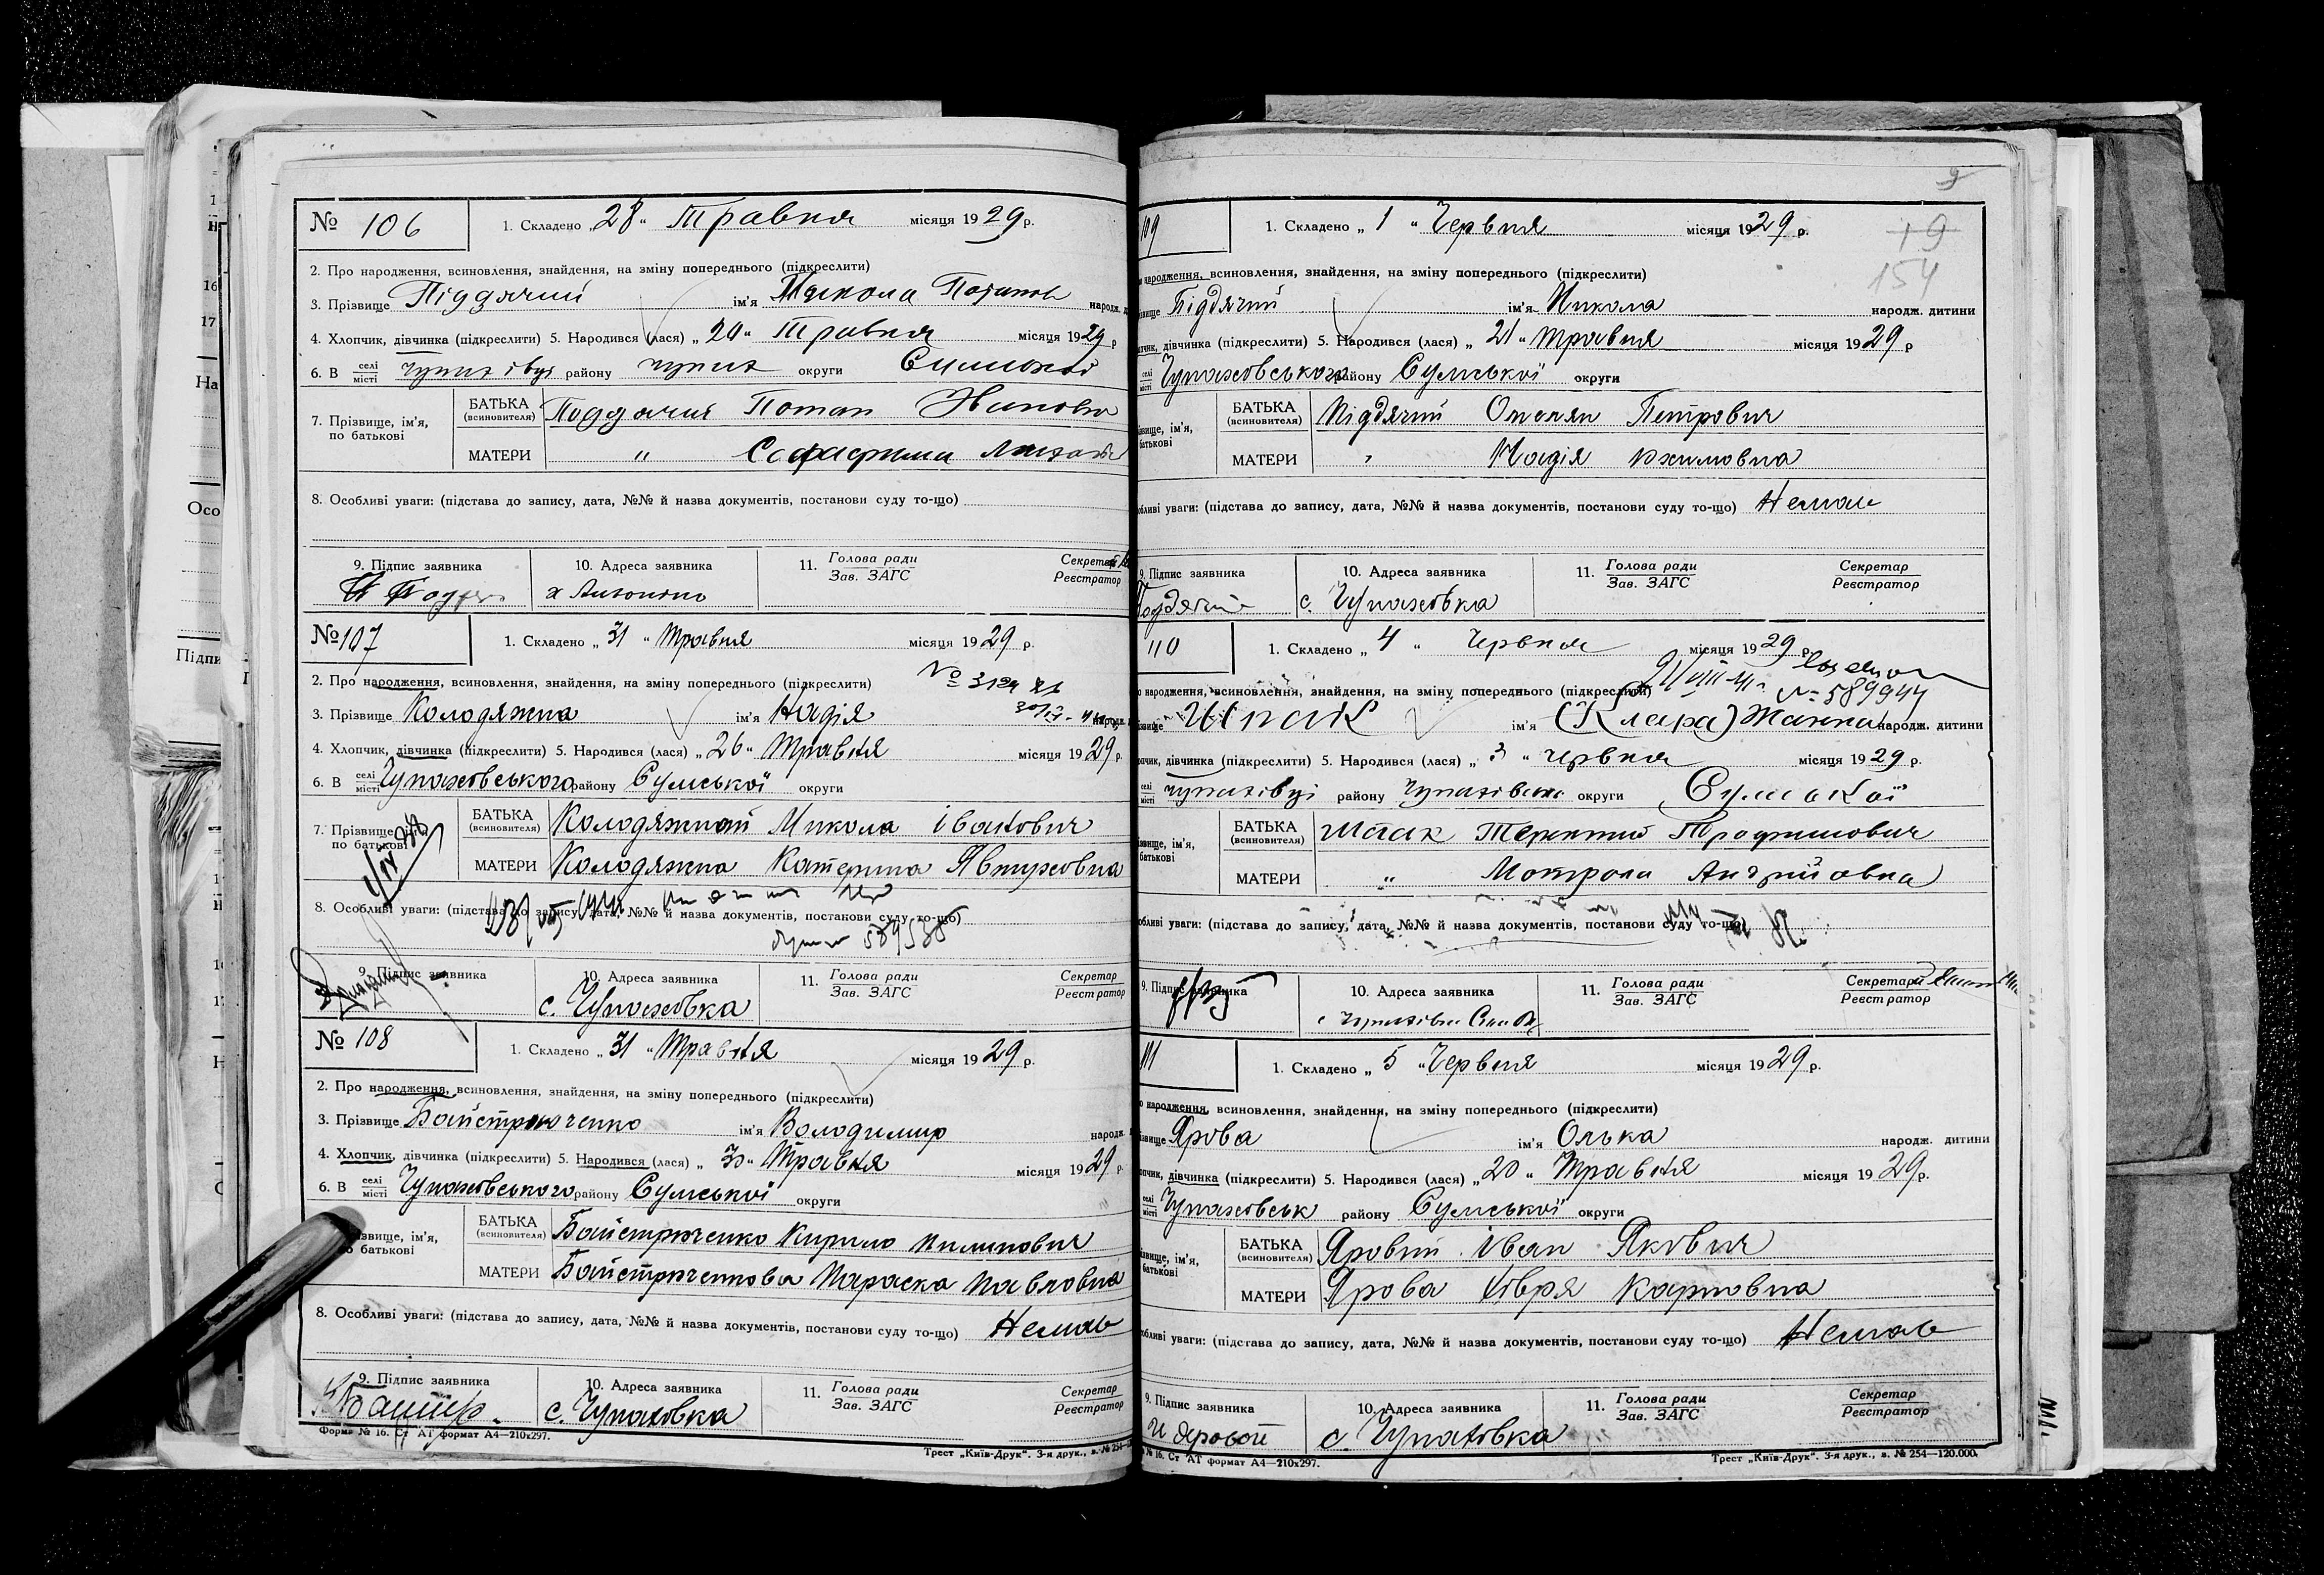 № 106
1. Складено „28“ Травня місяця 1929 р.
2. Про народження, всиновлення, знайдення, на зміну попереднього (підкреслити)
3. Прізвище Піддячий ім'я Микола народж.
4. Хлопчик, дівчинка (підкреслити) 5. Народився (лася) „20“ Травня місяця 1929 р
6. В селі місті району округи
7. Прізвище, ім'я, по батькові
БАТЬКА (всиновителя) Поддячий Потап
МАТЕРИ „
8. Особливі уваги: (підстава до запису, дата, №№ й назва документів, постанови суду то-що)
9. Підпис заявника 10. Адреса заявника 11. Голова ради Зав. ЗАГС Секретар Реєстратор
№ 107
1. Складено „31“ Травня місяця 1929 р.
2. Про народження, всиновлення, знайдення, на зміну попереднього (підкреслити)
№ 3124
3. Прізвище Колодяжна ім'я Надія народж.
4. Хлопчик, дівчинка (підкреслити) 5. Народився (лася) „26“ Травня місяця 1929 р.
6. В селі місті Чупахівського району Сумської округи
7. Прізвище, ім'я, по батькові
БАТЬКА (всиновителя) Колодяжний Микола Іванович
МАТЕРИ Колодяжна Катерина Явтуховна
8. Особливі уваги: (підстава до запису, дата, №№ й назва документів, постанови суду то-що)
9. Підпис заявника 10. Адреса заявника 11. Голова ради Зав. ЗАГС Секретар Реєстратор
с. Чупаховка
№ 108
1. Складено „31“ Травня місяця 1929 р.
2. Про народження, всиновлення, знайдення, на зміну попереднього (підкреслити)
3. Прізвище Байстрюченко ім'я Володимир народж.
4. Хлопчик, дівчинка (підкреслити) 5. Народився (лася) „30“ Травня місяця 1929 р.
6. В селі місті Чупаховського району Сумської округи
звище, ім'я, по батькові
БАТЬКА (всиновителя) Байстрюченко Кирило Пилипович
МАТЕРИ Байстрюченкова Параска Павловна
8. Особливі уваги: (підстава до запису, дата, №№ й назва документів, постанови суду то-що) Немає
9. Підпис заявника 10. Адреса заявника 11. Голова ради Зав. ЗАГС Секретар Реєстратор
с. Чупаховка
Форма № 16. Ст АТ формат А4—210х297.
Трест „Київ-Друк“. 3-я друк., з. № 254—
109
1. Складено „1“ Червня місяця 1929 р.
19
154
народження, всиновлення, знайдення, на зміну попереднього (підкреслити)
Піддячий ім'я Микола народж. дитини
дівчинка (підкреслити) 5. Народився (лася) „21“ Травня місяця 1929 р
селі місті Чупаховського району Сумської округи
ім'я, батькові
БАТЬКА (всиновителя) Піддячий Омелян Петрович
МАТЕРИ „ Надія Юхимовна
уваги: (підстава до запису, дата, №№ й назва документів, постанови суду то-що) Немає
9. Підпис заявника 10. Адреса заявника 11. Голова ради Зав. ЗАГС Секретар Реєстратор
с. Чупаховка
110
1. Складено „4“ Червня місяця 1929 р.
народження, всиновлення, знайдення, на зміну попереднього (підкреслити)
№ 589944
Шпак ім'я (Клара) Жанна народж. дитини
дівчинка (підкреслити) 5. Народився (лася) „3“ Червня місяця 1929 р.
селі місті Чупахівці району округи Сумської
ім'я, батькові
БАТЬКА (всиновителя) Шпак Терентий Трофимович
МАТЕРИ „ Мотрона Андрийовна
уваги: (підстава до запису, дата, №№ й назва документів, постанови суду то-що)
9. Підпис заявника 10. Адреса заявника 11. Голова ради Зав. ЗАГС Секретар Реєстратор
111
1. Складено „5“ Червня місяця 1929 р.
народження, всиновлення, знайдення, на зміну попереднього (підкреслити)
Ярова ім'я Олька народж. дитини
дівчинка (підкреслити) 5. Народився (лася) „20“ Травня місяця 1929 р.
селі місті Чупаховськ району Сумської округи
ім'я, батькові
БАТЬКА (всиновителя) Яровий Іван Якович
МАТЕРИ Ярова Карповна
уваги: (підстава до запису, дата, №№ й назва документів, постанови суду то-що) Немає
9. Підпис заявника 10. Адреса заявника 11. Голова ради Зав. ЗАГС Секретар Реєстратор
с. Чупаховка
№ 16. Ст АТ формат А4—210х297.
Трест „Київ-Друк“. 3-я друк., з. № 254—120.000.